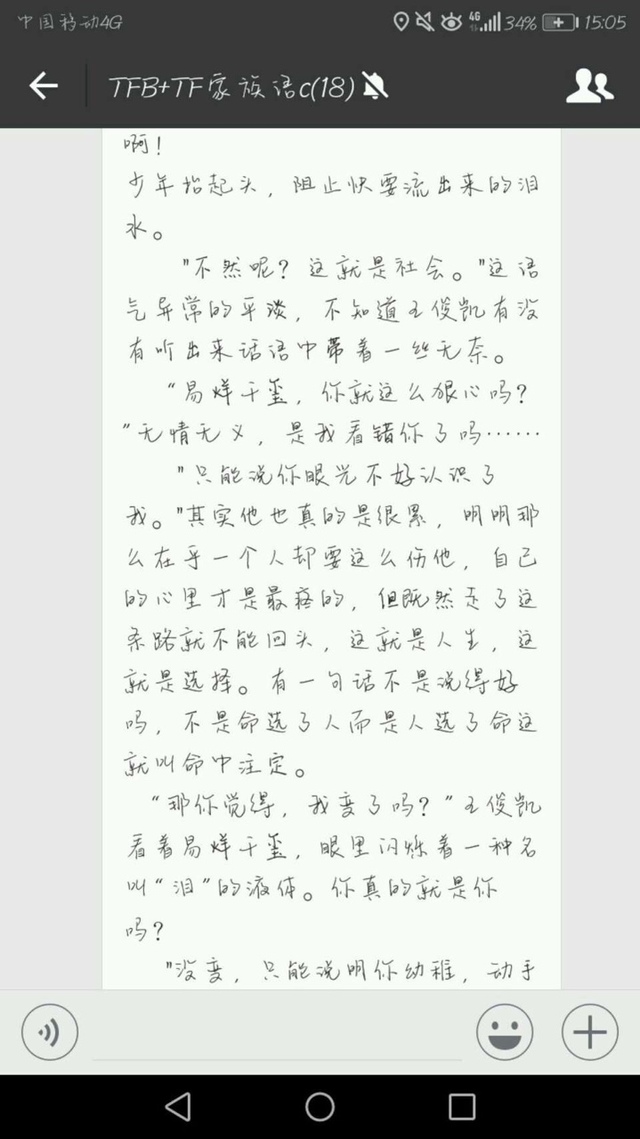 中国移动4G 4G 34% 15:05
TFB+TF家族语c(18)
啊！
少年抬起头，阻止快要流出来的泪
水。
"不然呢？这就是社会。"这语
气异常的平淡，不知道王俊凯有没
有听出来话语中带着一丝无奈。
“易烊千玺，你就这么狠心吗？
”无情无义，是我看错你了吗……
"只能说你眼光不好认识了
我。"其实他也真的是很累，明明那
么在乎一个人却要这么伤他，自己
的心里才是最疼的，但既然走了这
条路就不能回头，这就是人生，这
就是选择。有一句话不是说得好
吗，不是命选了人而是人选了命这
就叫命中注定。
“那你觉得，我变了吗？”王俊凯
看着易烊千玺，眼里闪烁着一种名
叫“泪”的液体。你真的就是你
吗？
"没变，只能说明你幼稚，动手